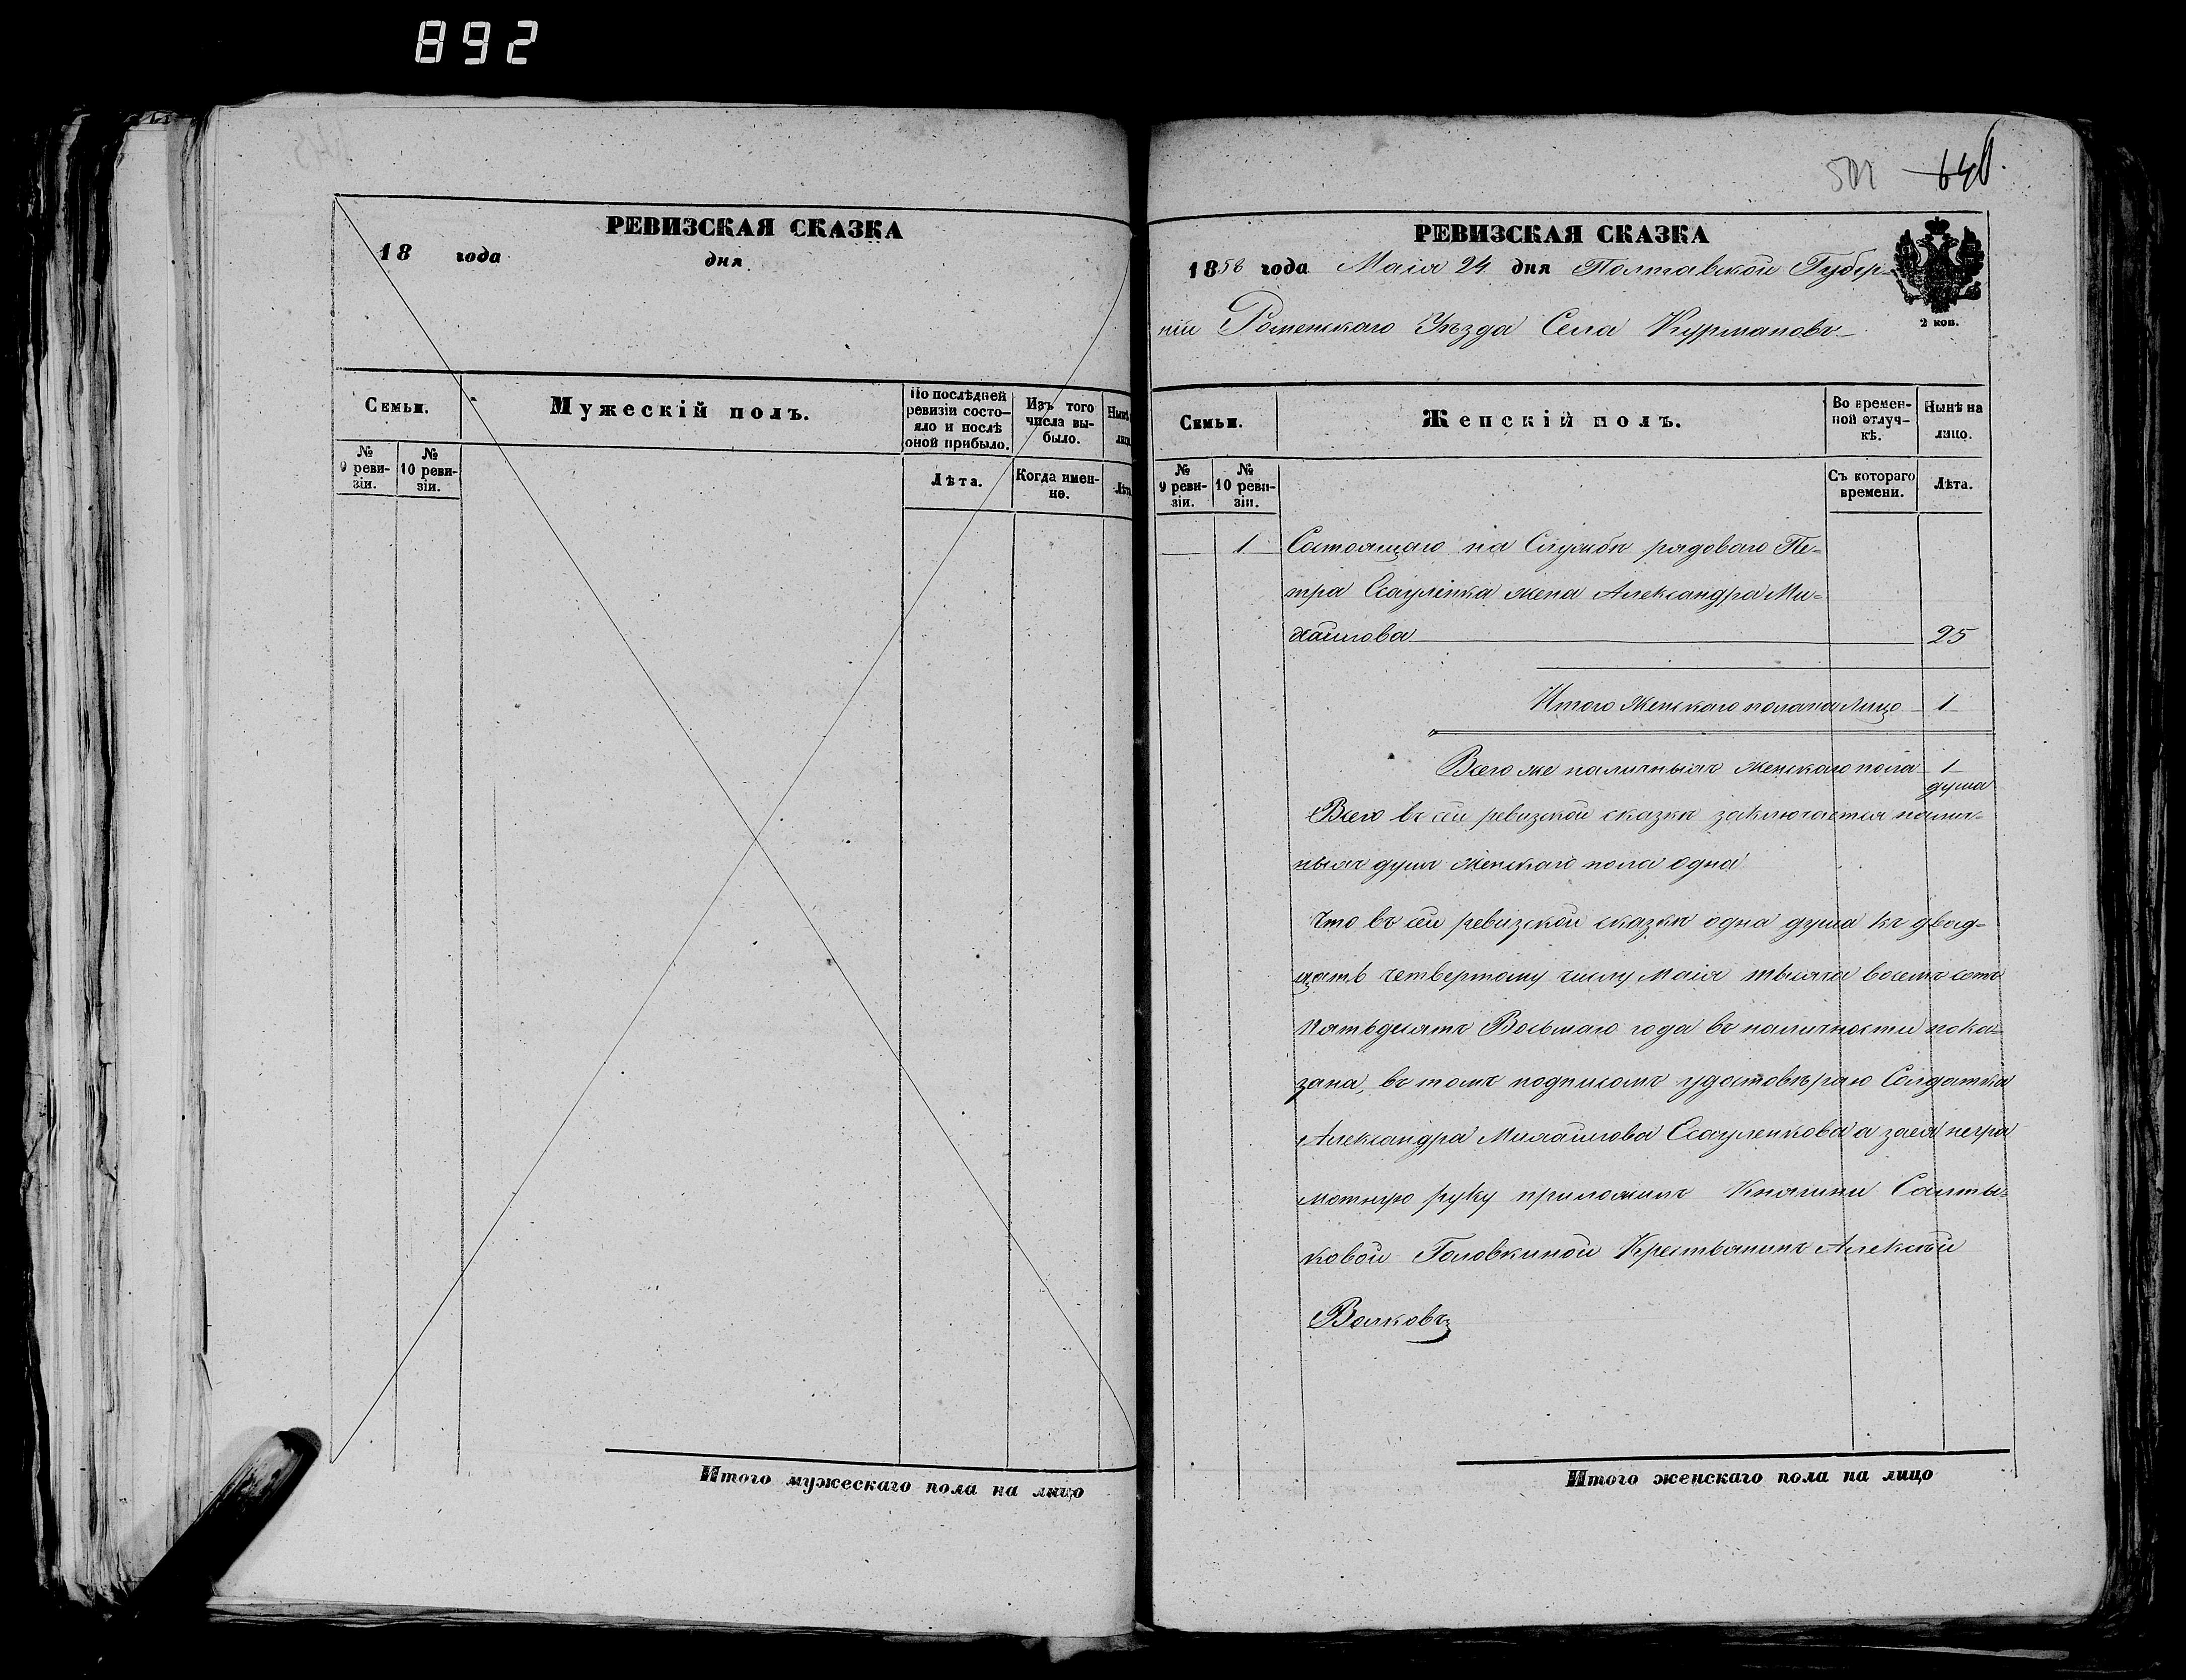 892
РЕВИЗСКАЯ СКАЗКА
18 года дня
Семьи.
Мужескій полъ.
По послѣдней ревизіи состо-
яло и послѣ оной прибыло.
Изъ того числа вы-
было.
Нынѣ
лицо
№ 9 реви-
зіи.
№ 10 реви-
зіи.
Лѣта.
Когда имен-
но.
Лѣта
Итого мужескаго пола на лицо
РЕВИЗСКАЯ СКАЗКА
1858 года Маія 24 дня Полтавской Губер-
ніи Роменскаго Уѣзда Села Курмановъ
2 коп.
Семьи.
Женскій полъ.
Во времен-
ной отлуч-
кѣ.
Нынѣ на
лицо.
№ 9 реви-
зіи.
№ 10 реви-
зіи.
Съ котораго
времени.
Лѣта.
1 Состоящаго на Службѣ рядоваго Пе=
тра Есауленка жена Александра Ми=
хайлова 25
Итого Женскаго пола на Лицо 1
Всего же наличныхъ Женскаго пола 1
душа
Всего въ сей ревизской сказкѣ заключается налич=
ныхъ душъ Женскаго пола одна
Что въ сей ревизской сказкѣ одна душа къ двад=
цать четвертому числу Маія тысяча восемъ сотъ
Пятьдесятъ Восьмаго года въ наличности пока=
зана, въ томъ подписомъ удостовѣряю Солдатка
Александра Михайлова Есауленкова а за ея негра
мотную руку приложилъ Княгини Салты=
ковой Головкиной Крестьянинъ Алексѣй
Волковъ
Итого женскаго пола на лицо